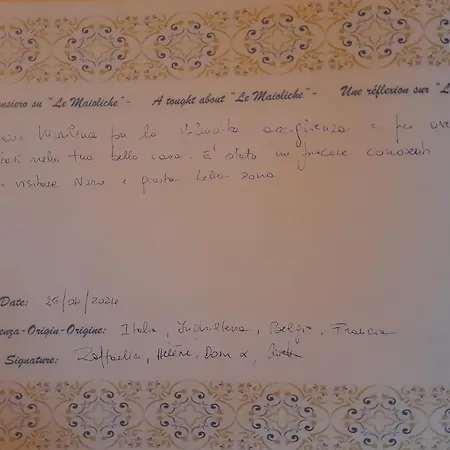 nsiero su "Le Maioliche"- A tought about "Le Maioliche"- Une réflexion sur "L
Marilena per la squisita accoglienza e per ave
nella tua bella casa. E' stato un piacere conoscerti
visitare Noto e questa bella zona
Date: 25/04/2024
enza-Origin-Origine: Italia, Inghilterra, Belgio, Francia
Signature: Raffaella, Hélène, Dom &